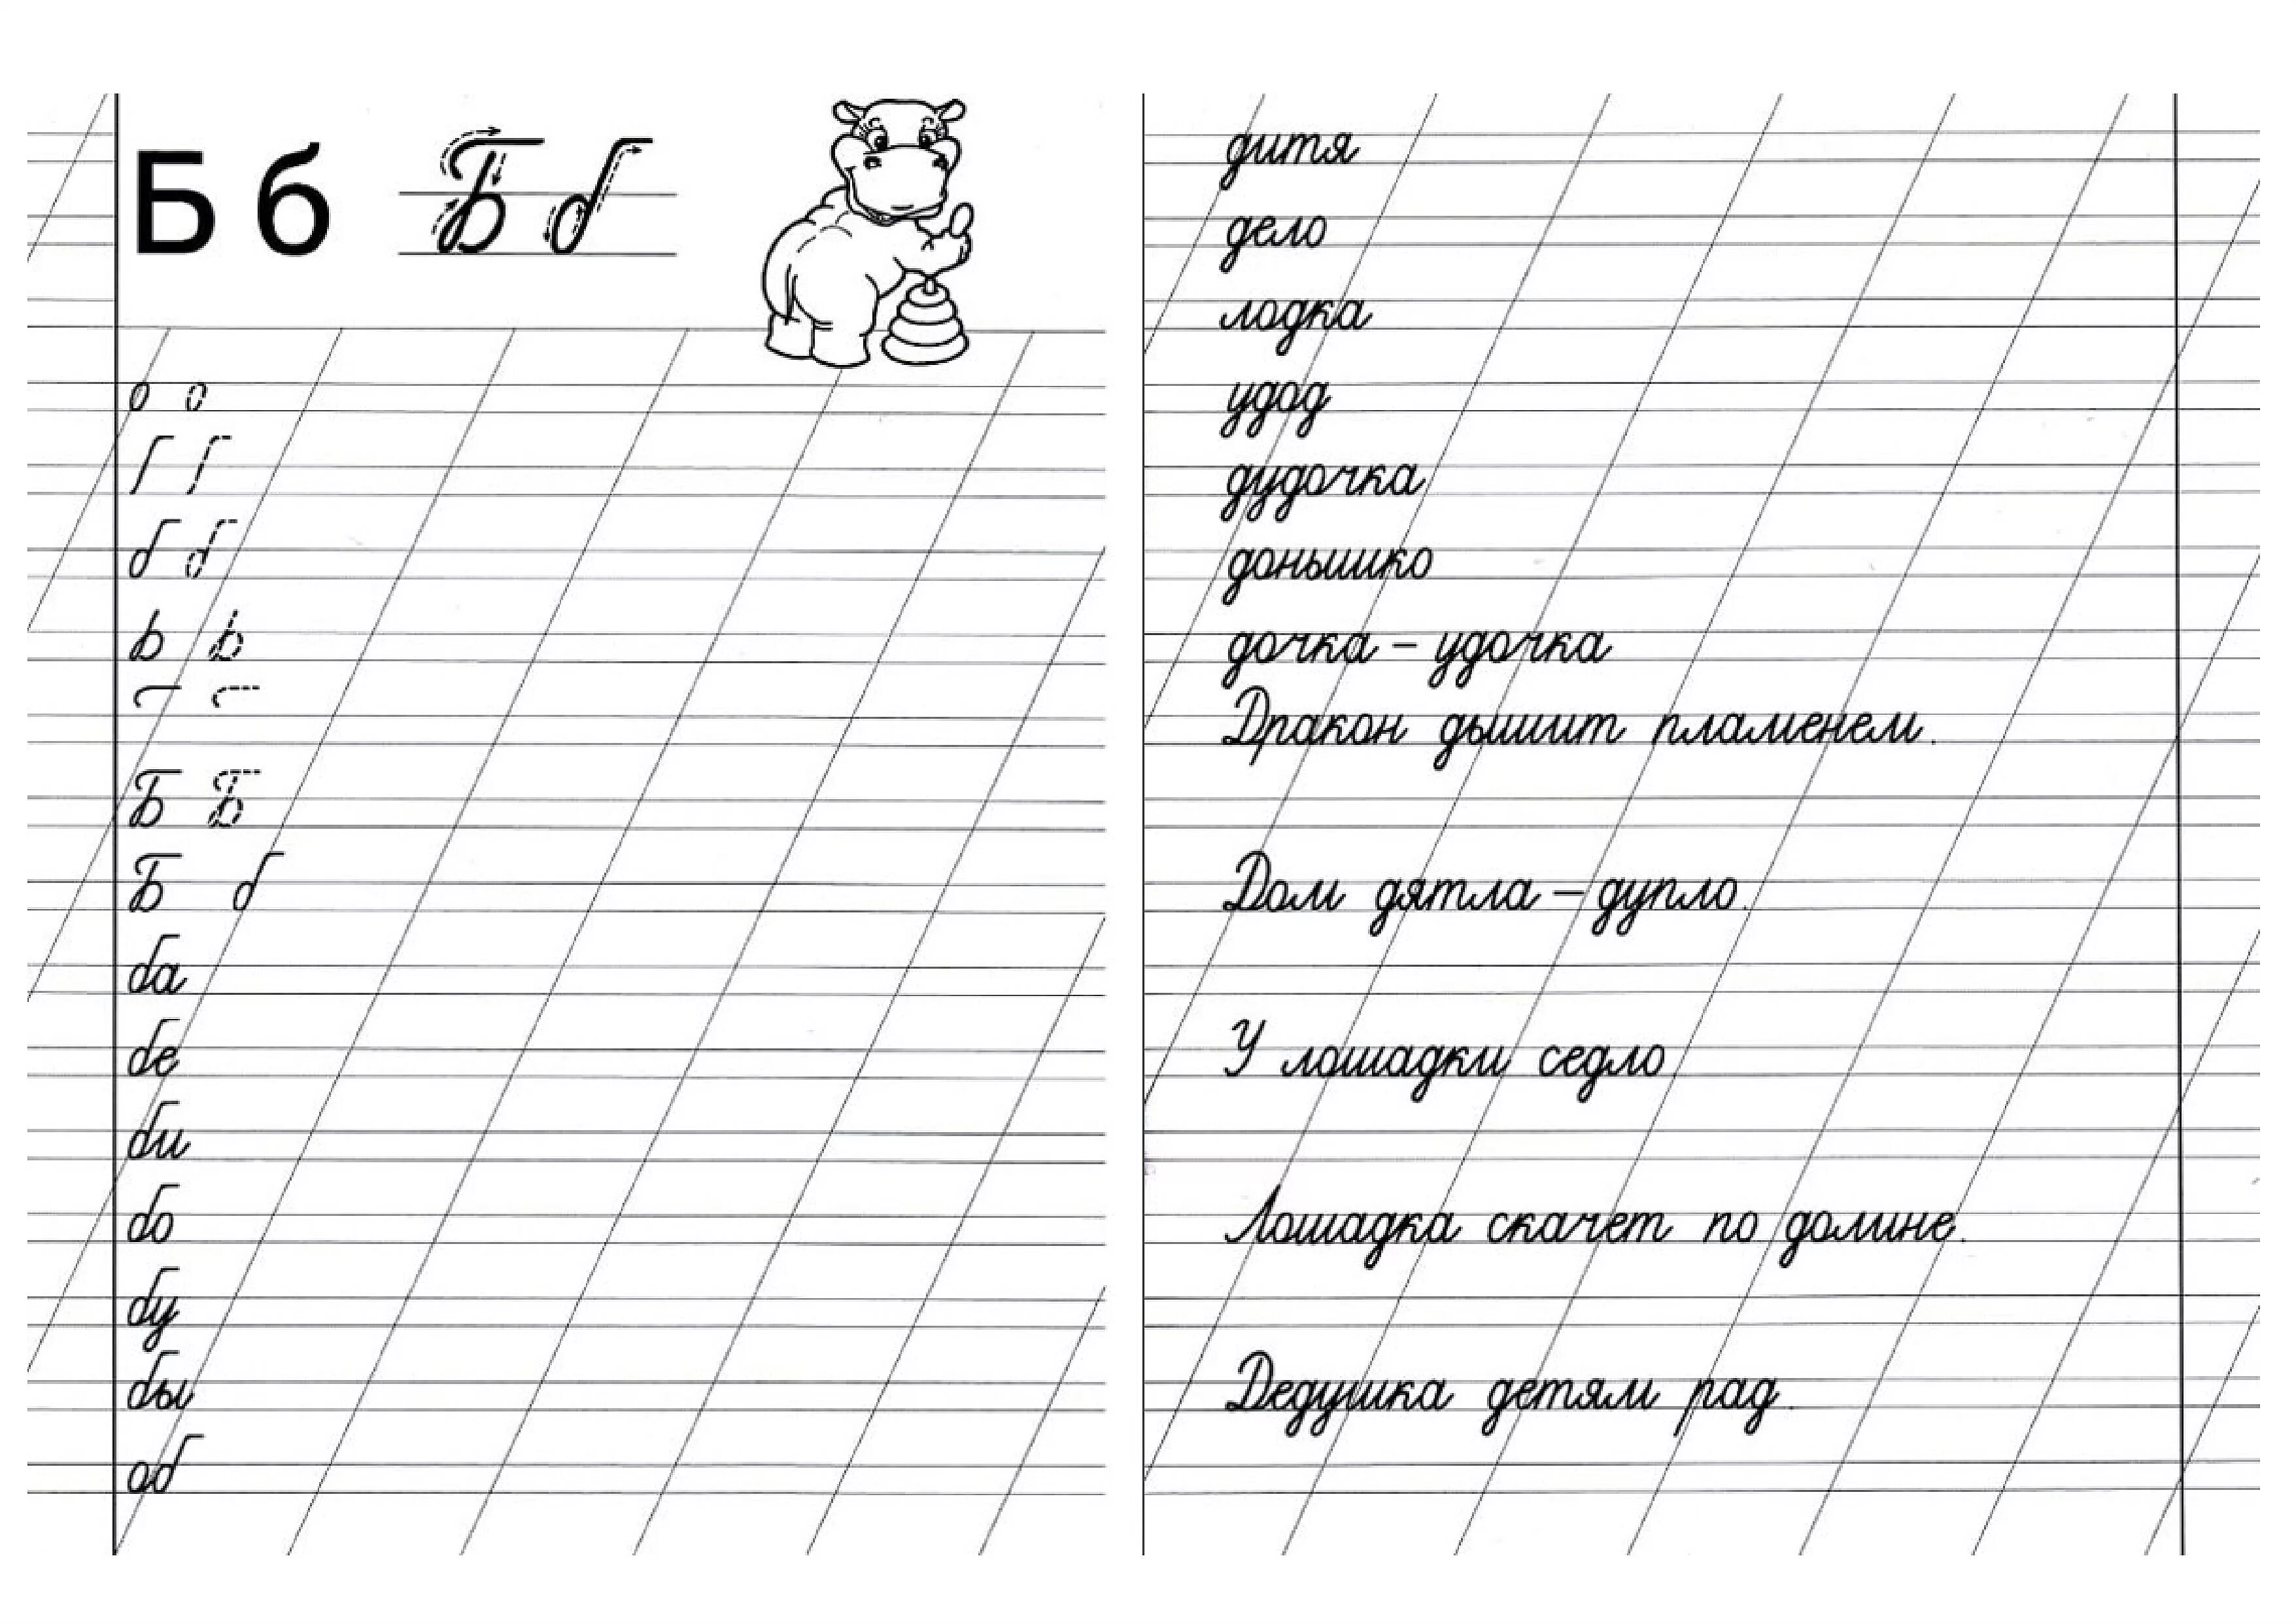 Б б Б б
о о
б б
ь ь
Б Б
Б б
ба
бе
би
бо
бу
бы
об
дитя
дело
лодка
удод
дудочка
донышко
дочка – удочка
Дракон дышит пламенем.
Дом дятла – дупло.
У лошадки седло
Лошадка скачет по долине.
Дедушка детям рад.